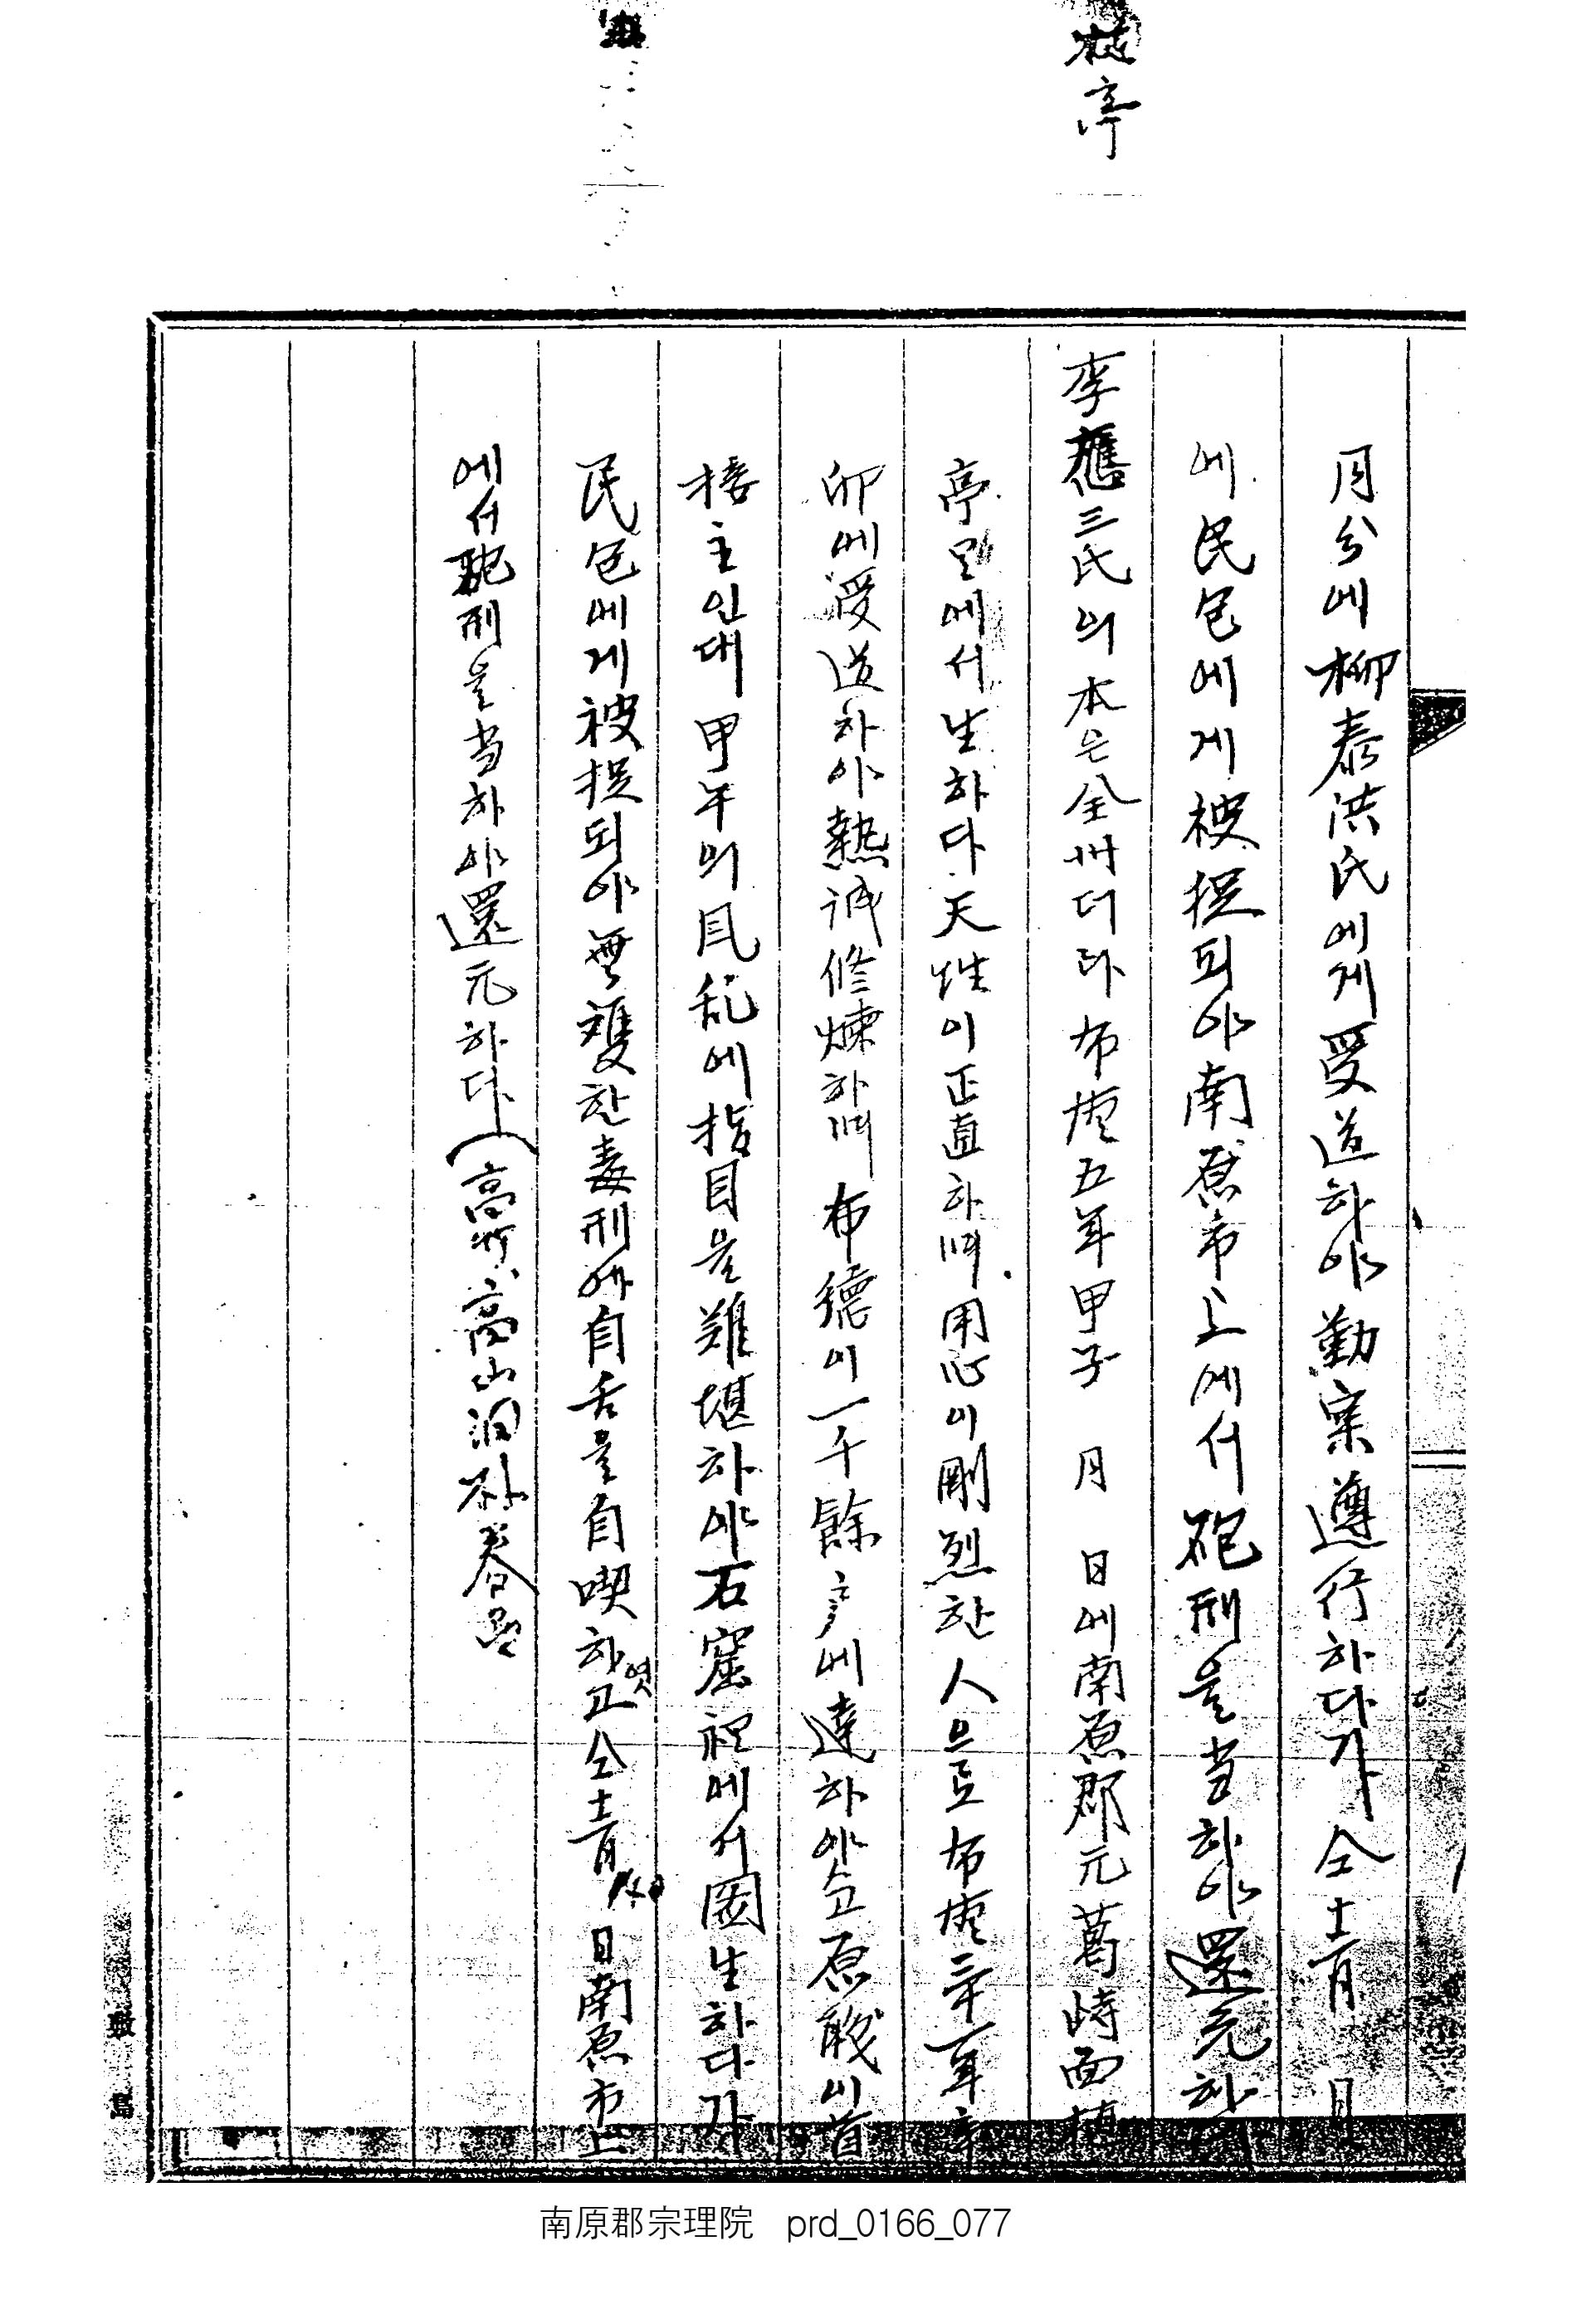 亭
月分에柳泰洪氏에게受道하야勤實遵行하다가仝十二月 日
에民包에게被捉되야南原市上에서砲刑을当하야還元하
李應三氏의本은全州더라布德五年甲子 月 日에南原郡元葛峙面植
亭里에서生하다天性이正直하며用心이剛烈한人으로布德三十二年辛
卯에受道하야熱誠修煉하며布德이一千餘戶에達하야仝原籍이首
接主인대甲午의風乱에指目을難堪하야石窟裡에서圖生하다가
民包에게被捉되야無雙한毒刑에自舌을自喫하엿고仝十二月 日南原市上
에서砲刑을当하야還元하다(高 高山洞 春
南原郡宗理院 prd_0166_077